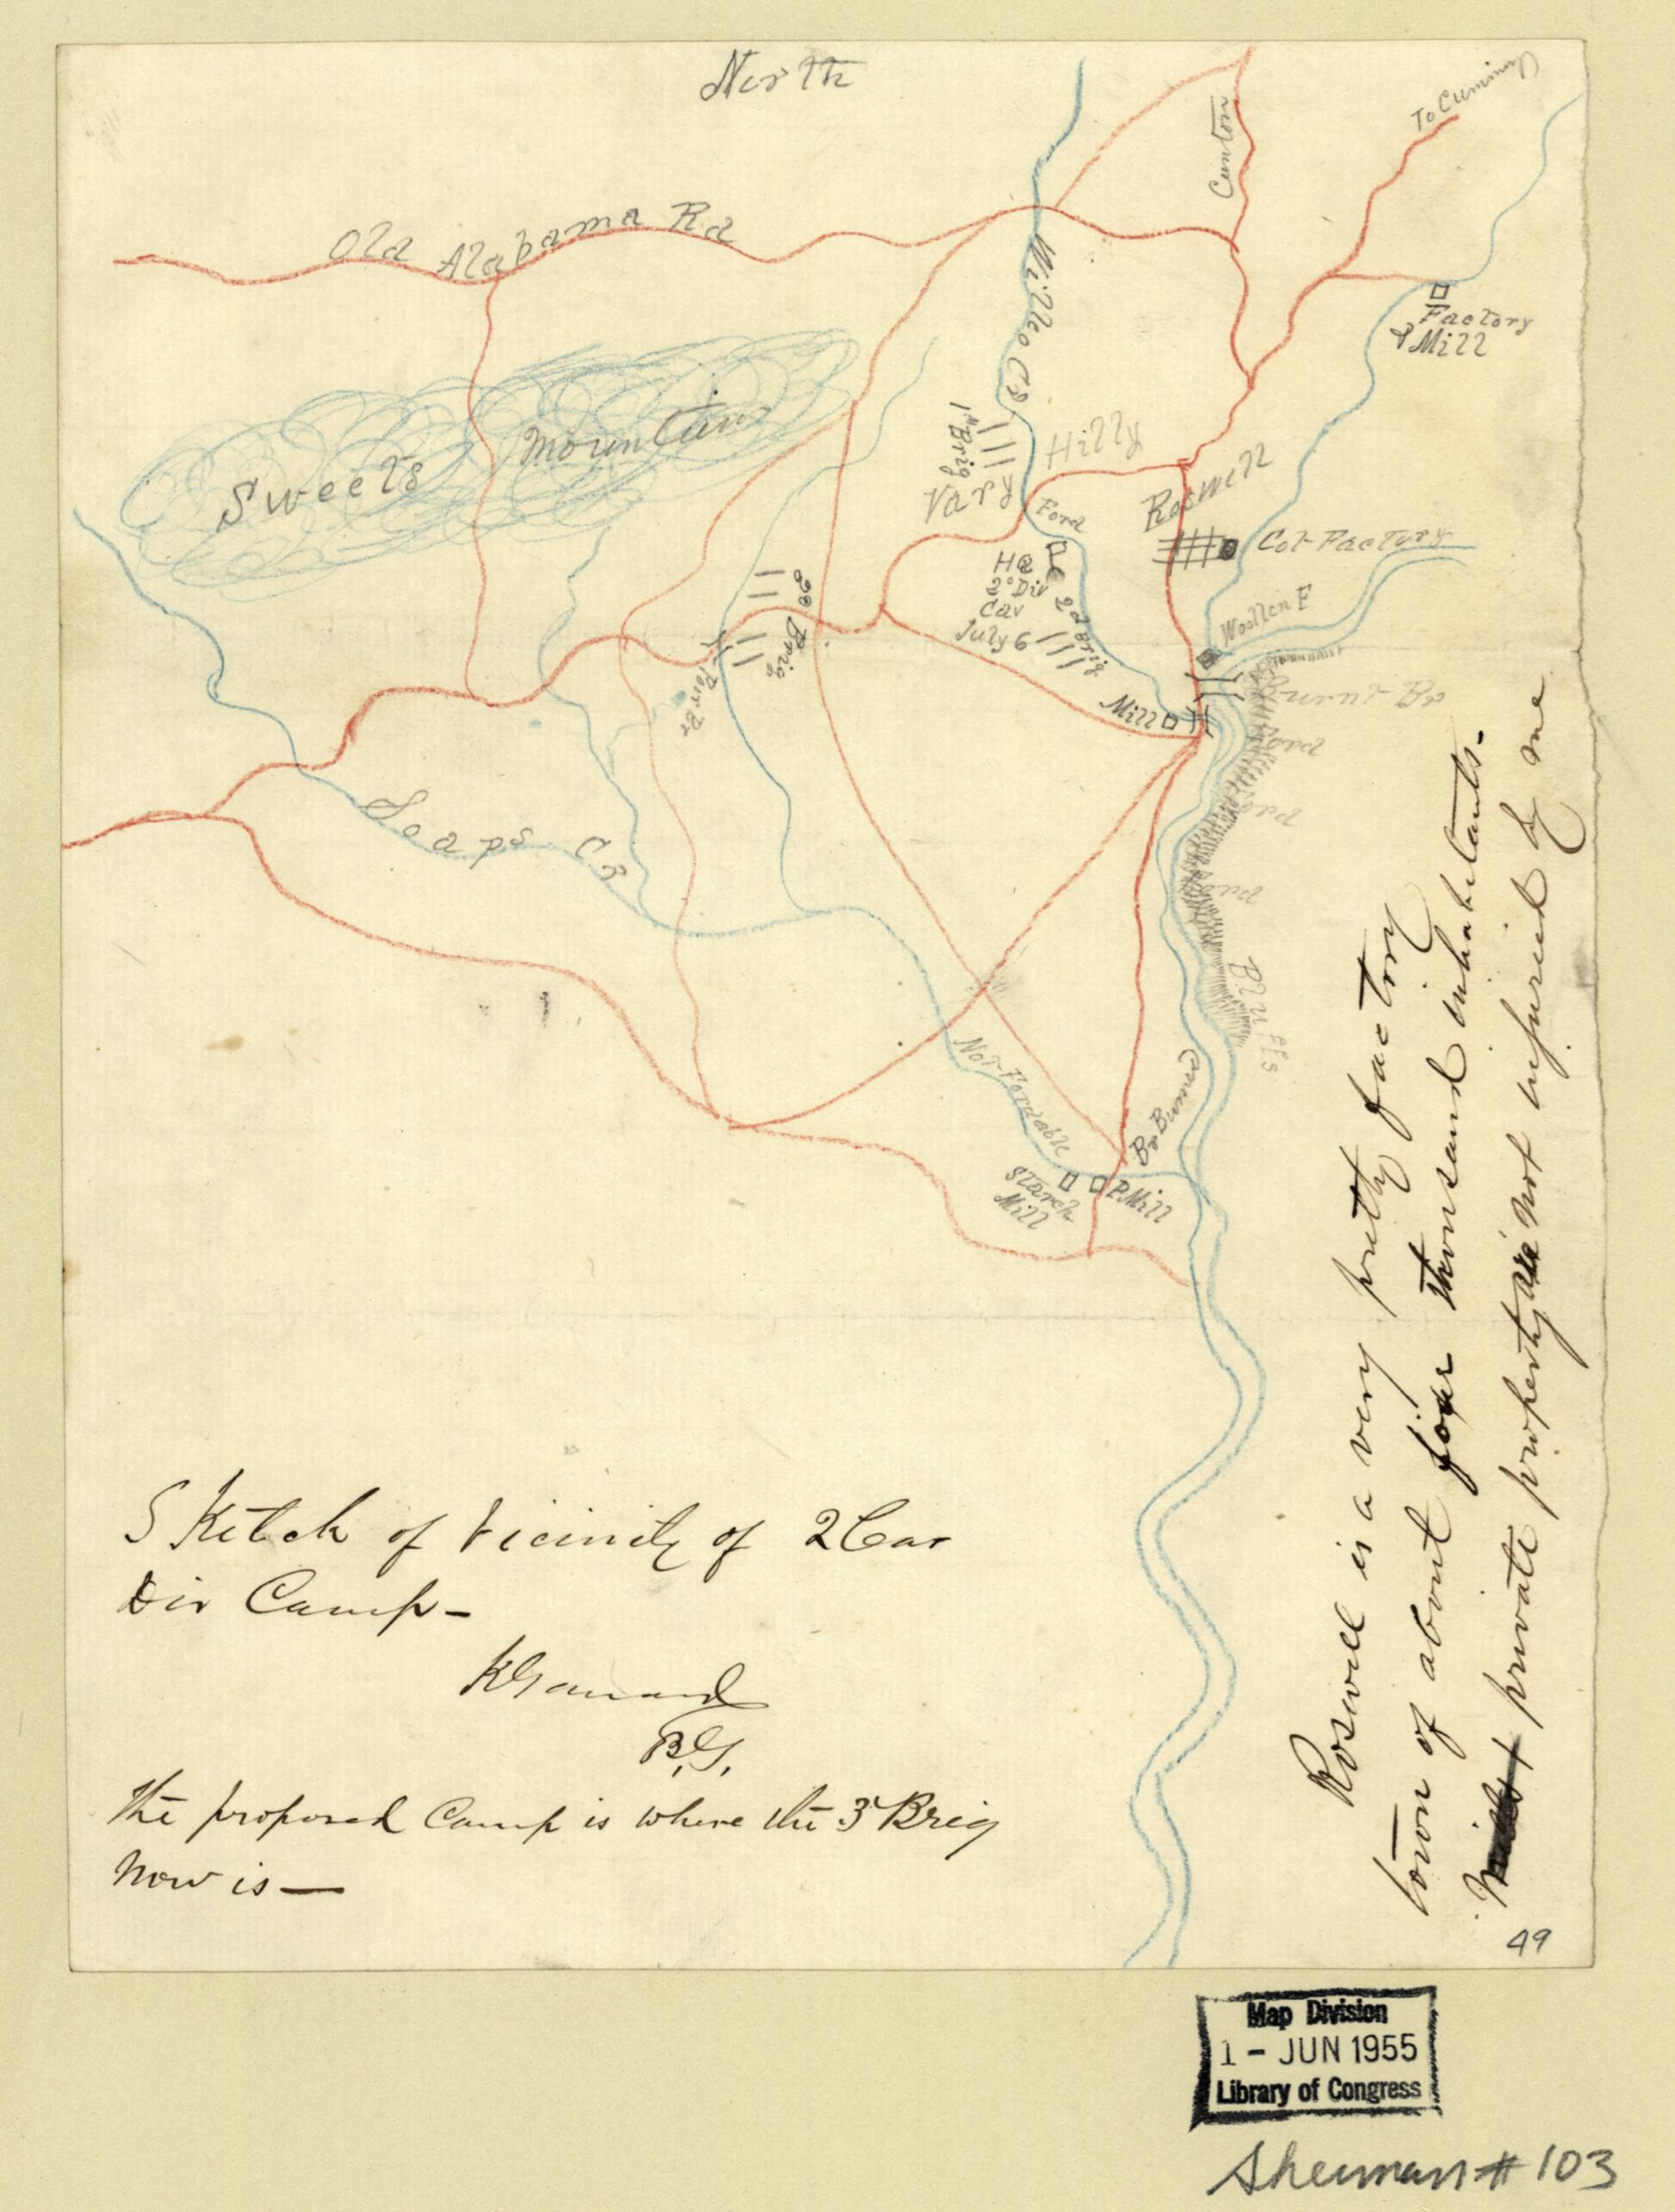 North
To Cumming
Canton
Old Alabama Rd
Willeo Cr
Factory
& Mill
Sweets Mountain
1st Brig
Hilly
Vary
Ford
Roswell
Cot Factory
Hd
2d Div
Cav
July 6
2d Brig
Woollen F
Brig
Poor Br
Mill
Burnt Br
Ford
Ford
Ford
Soaps Cr
Bluffs
Not Fordable
Br Burned
Starch
Mill
P. Mill
Sketch of Vicinity of 2 Cav
Div Camp -
K Garrard
B.G.
The proposed Camp is where the 3d Brig
now is —
Roswell is a very pretty factory
town of about four thousand inhabitants -
private property not injured by me
49
Map Division
1 - JUN 1955
Library of Congress
Sherman # 103